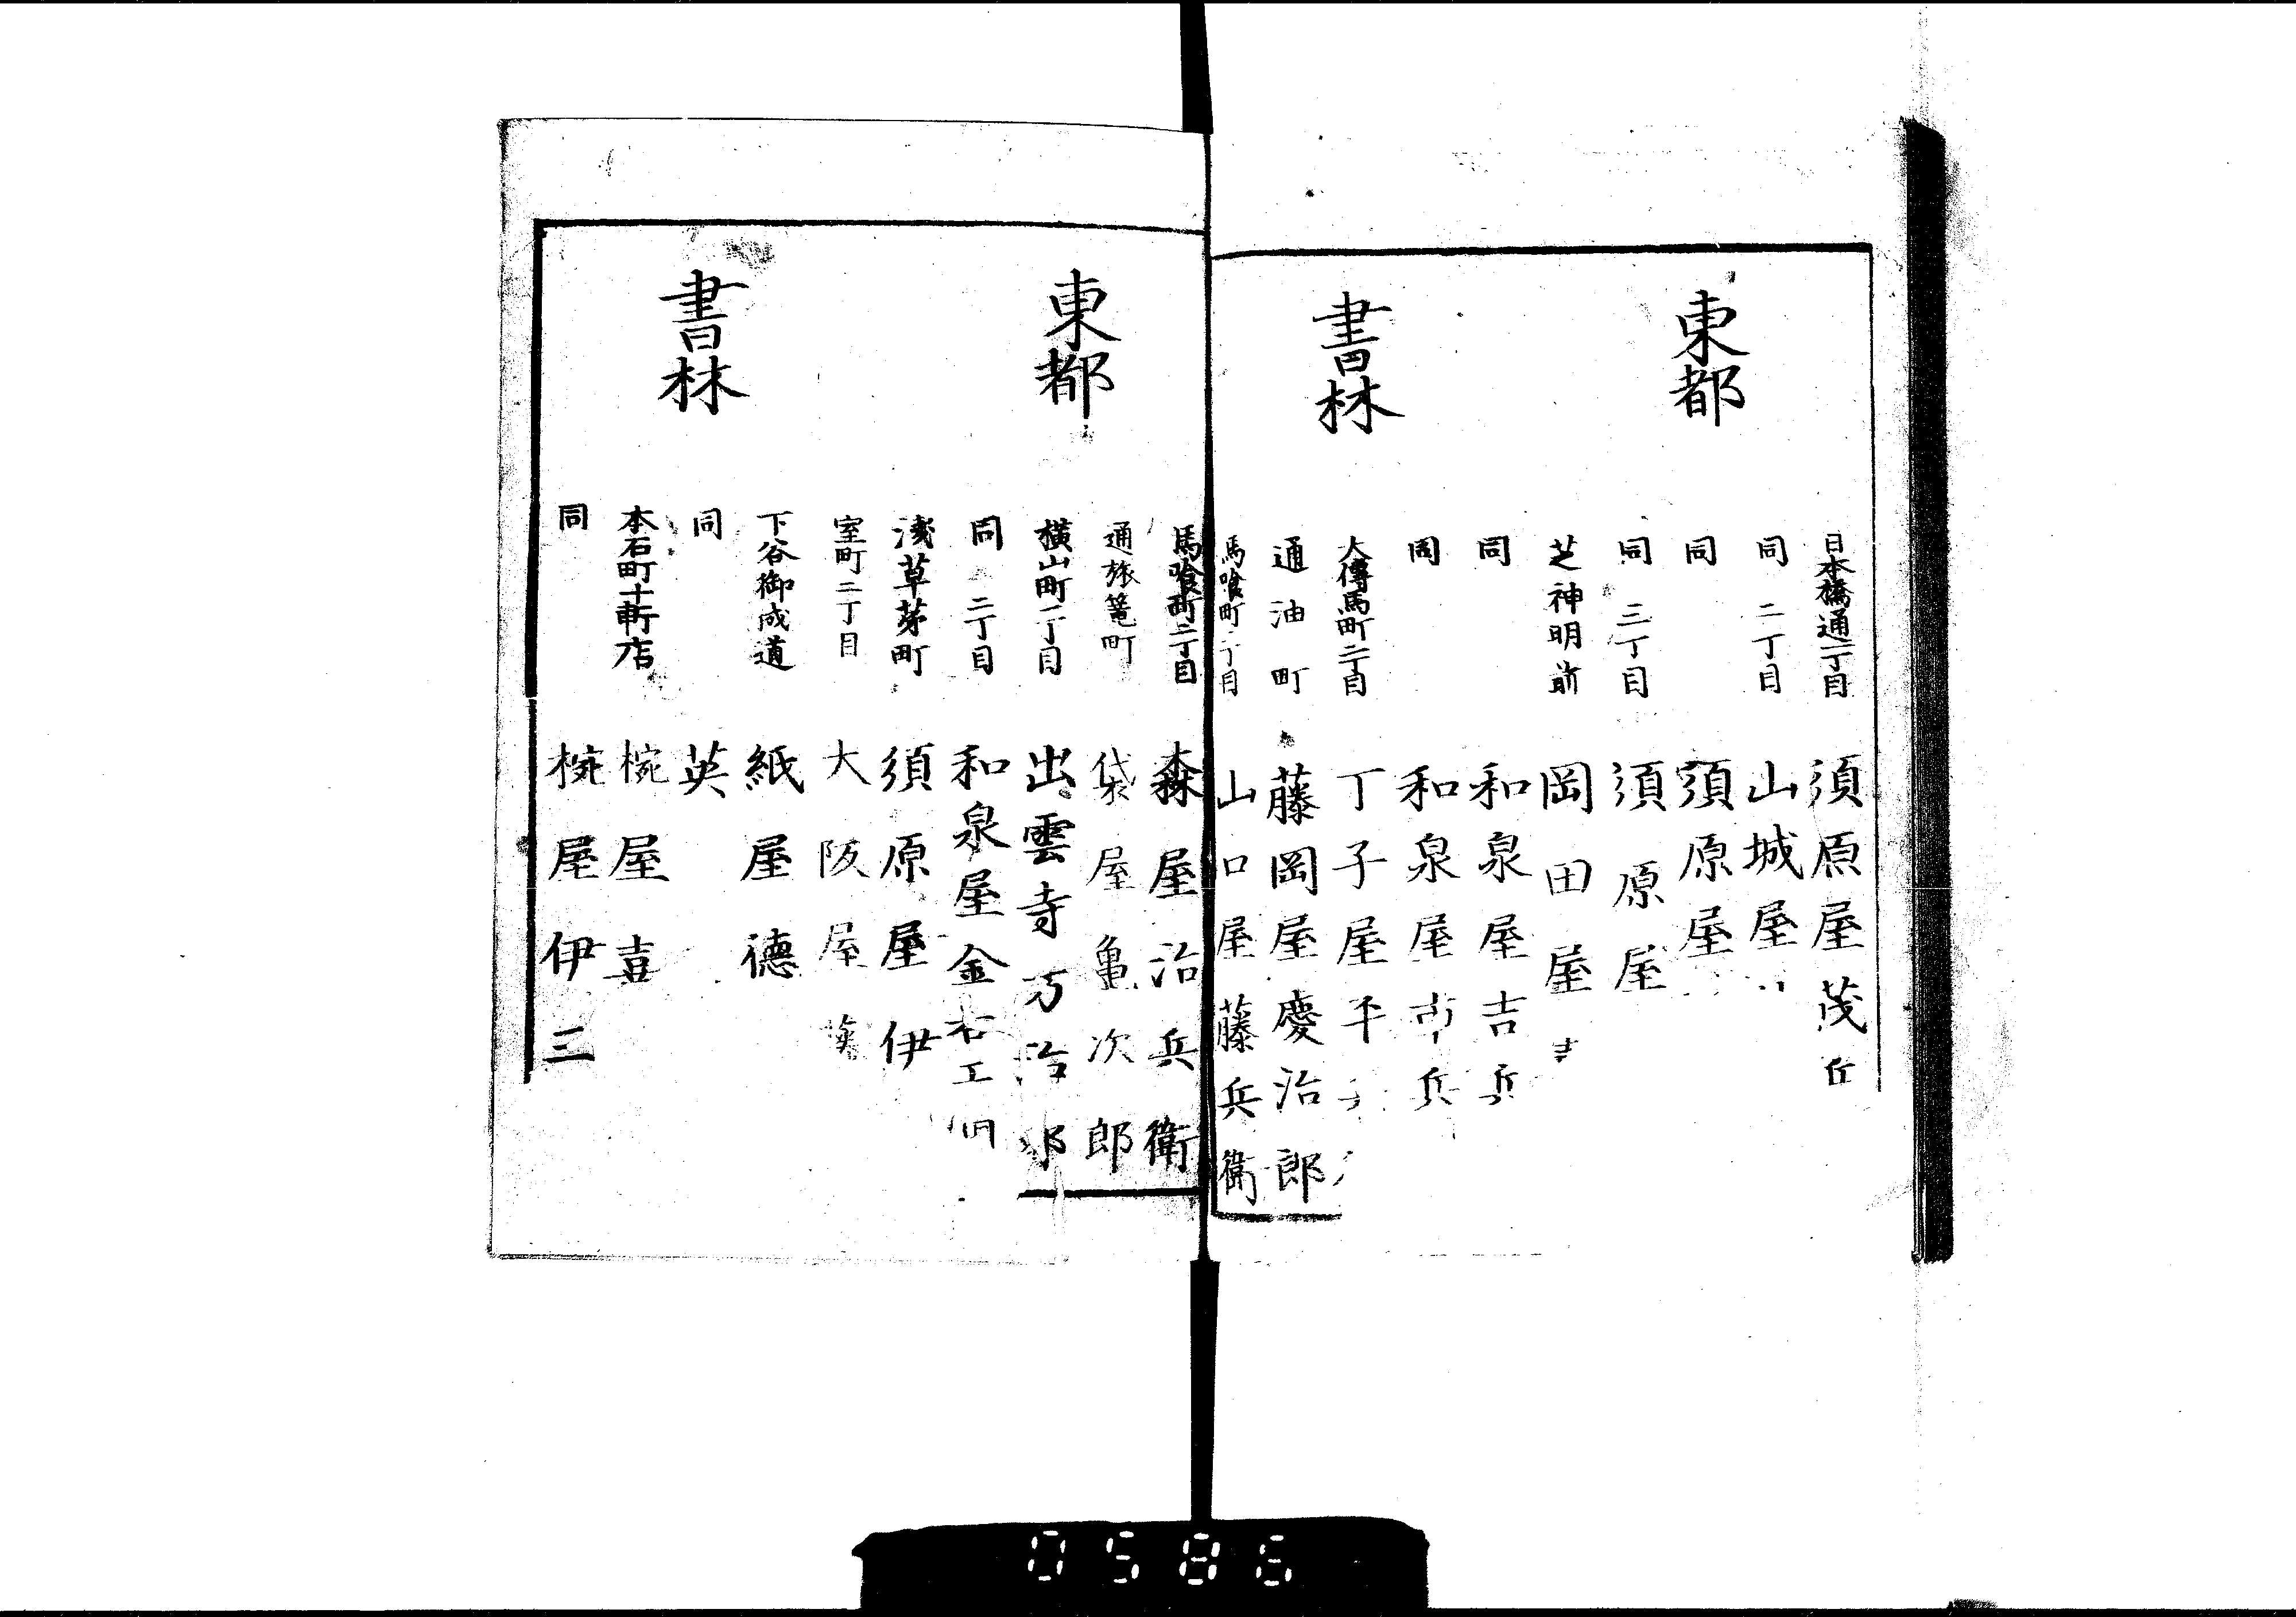 東都
書林
日本橋通一丁目 須原屋茂兵
同 二丁目 山城屋
同 須原屋
同 三丁目 須原屋
芝神明前 岡田屋
同 和泉屋吉兵
同 和泉屋市兵
大傳馬町二丁目 丁子屋平
通油町 藤岡屋慶治郎
馬喰町二丁目 山口屋藤兵衞
東都
書林
馬喰町二丁目 森屋治兵衛
通旅篭町 袋屋亀次郎
横山町一丁目 出雲寺万治郎
同 二丁目 和泉屋金右エ門
淺草茅町 須原屋伊
室町二丁目 大阪屋
下谷御成道 紙屋德
同 英
本石町十軒店 椀屋喜
同 椀屋伊三
0586